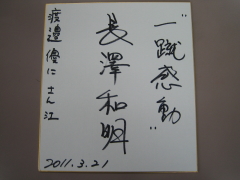 "一蹴感動"
長澤和明
渡邉優にさん江
2011.3.21